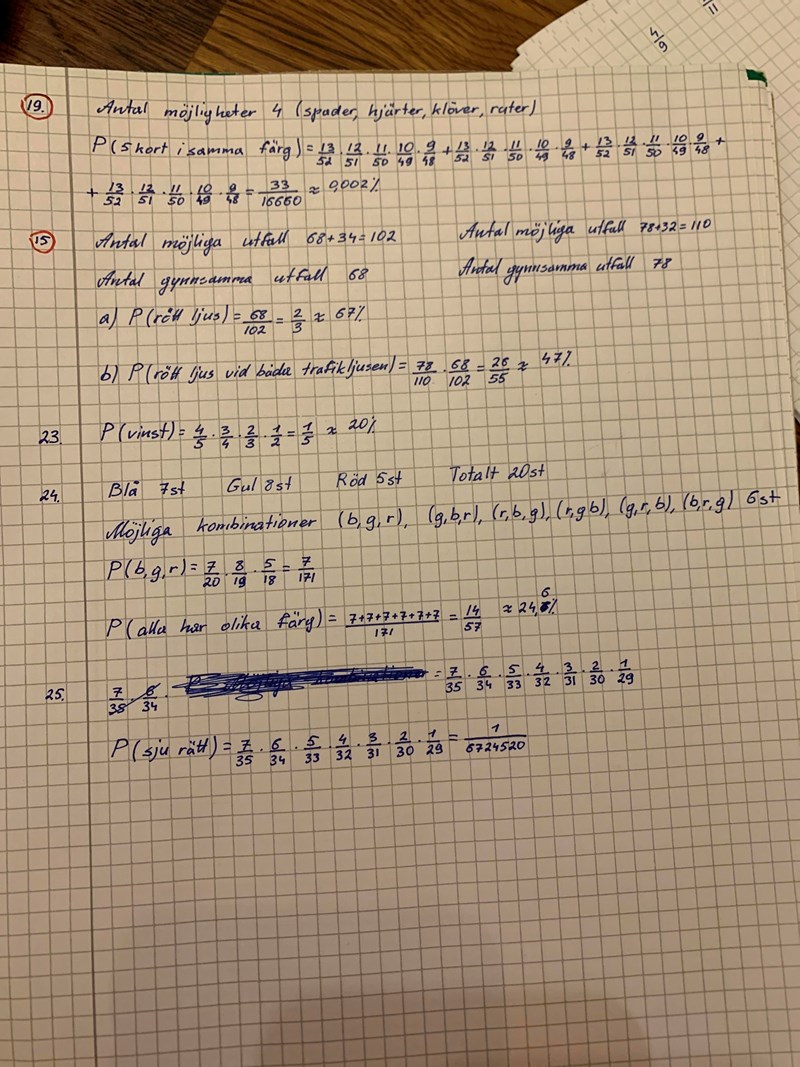 4/9
11
19. Antal möjligheter 4 (spader, hjärter, klöver, ruter)
P(5 kort i samma färg) = 13/52 · 12/51 · 11/50 · 10/49 · 9/48 + 13/52 · 12/51 · 11/50 · 10/49 · 9/48 + 13/52 · 12/51 · 11/50 · 10/49 · 9/48 +
+ 13/52 · 12/51 · 11/50 · 10/49 · 9/48 = 33/16660 ≈ 0,002%
15 Antal möjliga utfall 68+34=102 Antal möjliga utfall 78+32=110
Antal gynnsamma utfall 68 Antal gynnsamma utfall 78
a) P(rött ljus) = 68/102 = 2/3 ≈ 67%
b) P(rött ljus vid båda trafikljusen) = 78/110 · 68/102 = 26/55 ≈ 47%
23. P(vinst) = 4/5 · 3/4 · 2/3 · 1/2 = 1/5 ≈ 20%
24. Blå 7st Gul 8st Röd 5st Totalt 20st
Möjliga kombinationer (b,g,r), (g,b,r), (r,b,g), (r,gb), (g,r,b), (b,r,g) 6st
P(b,g,r) = 7/20 · 8/19 · 5/18 = 7/171
P(alla har olika färg) = 7+7+7+7+7+7/171 = 14/57 ≈ 24,6%
25. 7/35 6/34 · = 7/35 · 6/34 · 5/33 · 4/32 · 3/31 · 2/30 · 1/29
P(sju rätt) = 7/35 · 6/34 · 5/33 · 4/32 · 3/31 · 2/30 · 1/29 = 1/6724520